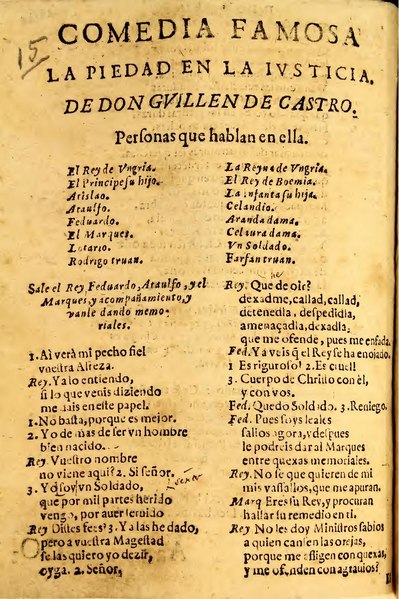 15
COMEDIA FAMOSA
LA PIEDAD EN LA IVSTICIA.
DE DON GVILLEN DE CASTRO.
Personas que hablan en ella.
El Rey de Vngria.
El Principe su hijo.
Atislao.
Ataulfo.
Feduardo.
El Marques.
Lotario.
Rodrigo truan.
La Reyna de Vngria.
El Rey de Boemia.
La infanta su hija.
Celandio.
Aranda dama.
Celaura dama.
Vn Soldado.
Farfan truan.
Sale el Rey Feduardo, Ataulfo, y el
Marques y acompañamiento, y
vanle dando memo-
riales.
1. Ai verà mi pecho fiel
vuestra Alteza.
Rey. Ya lo entiendo,
si lo que venis diziendo
me dais en este papel.
1. No basta, porque es mejor.
2. Yo demas de ser vn hombre
bien nacido.
Rey. Vuestro nombre
no viene aqui? 2. Si señor.
3. Yo soy vn Soldado,
que por mil partes herido
vengo, por auer seruido
Rey Distes fees? 3. Ya las he dado,
pero a vuestra Magestad
se las quiero yo dezir,
oyga. 2. Señor,
Rey. Que de oir?
dexadme, callad, callad,
detenedla, despedidla,
amenaçadla, dexadla,
que me ofende, pues me enfada.
Fed. Ya veis q̃ el Rey se ha enojado.
1 Es riguroso! 2. Es cruel!
3. Cuerpo de Christo con èl,
y con vos.
Fed. Quedo Soldado. 3. Reniego.
Fed. Pues soys leales
salios agora, y despues
le podreis dar al Marques
entre quexas memoriales.
Rey. No se que quieren de mi
mis vassallos, que me apuran.
Marq Eres su Rey, y procuran
hallar su remedio en ti.
Rey No les doy Ministros sabios
a quien cansen las orejas,
porque me afligen con quexas,
y me ofenden con agrauios?